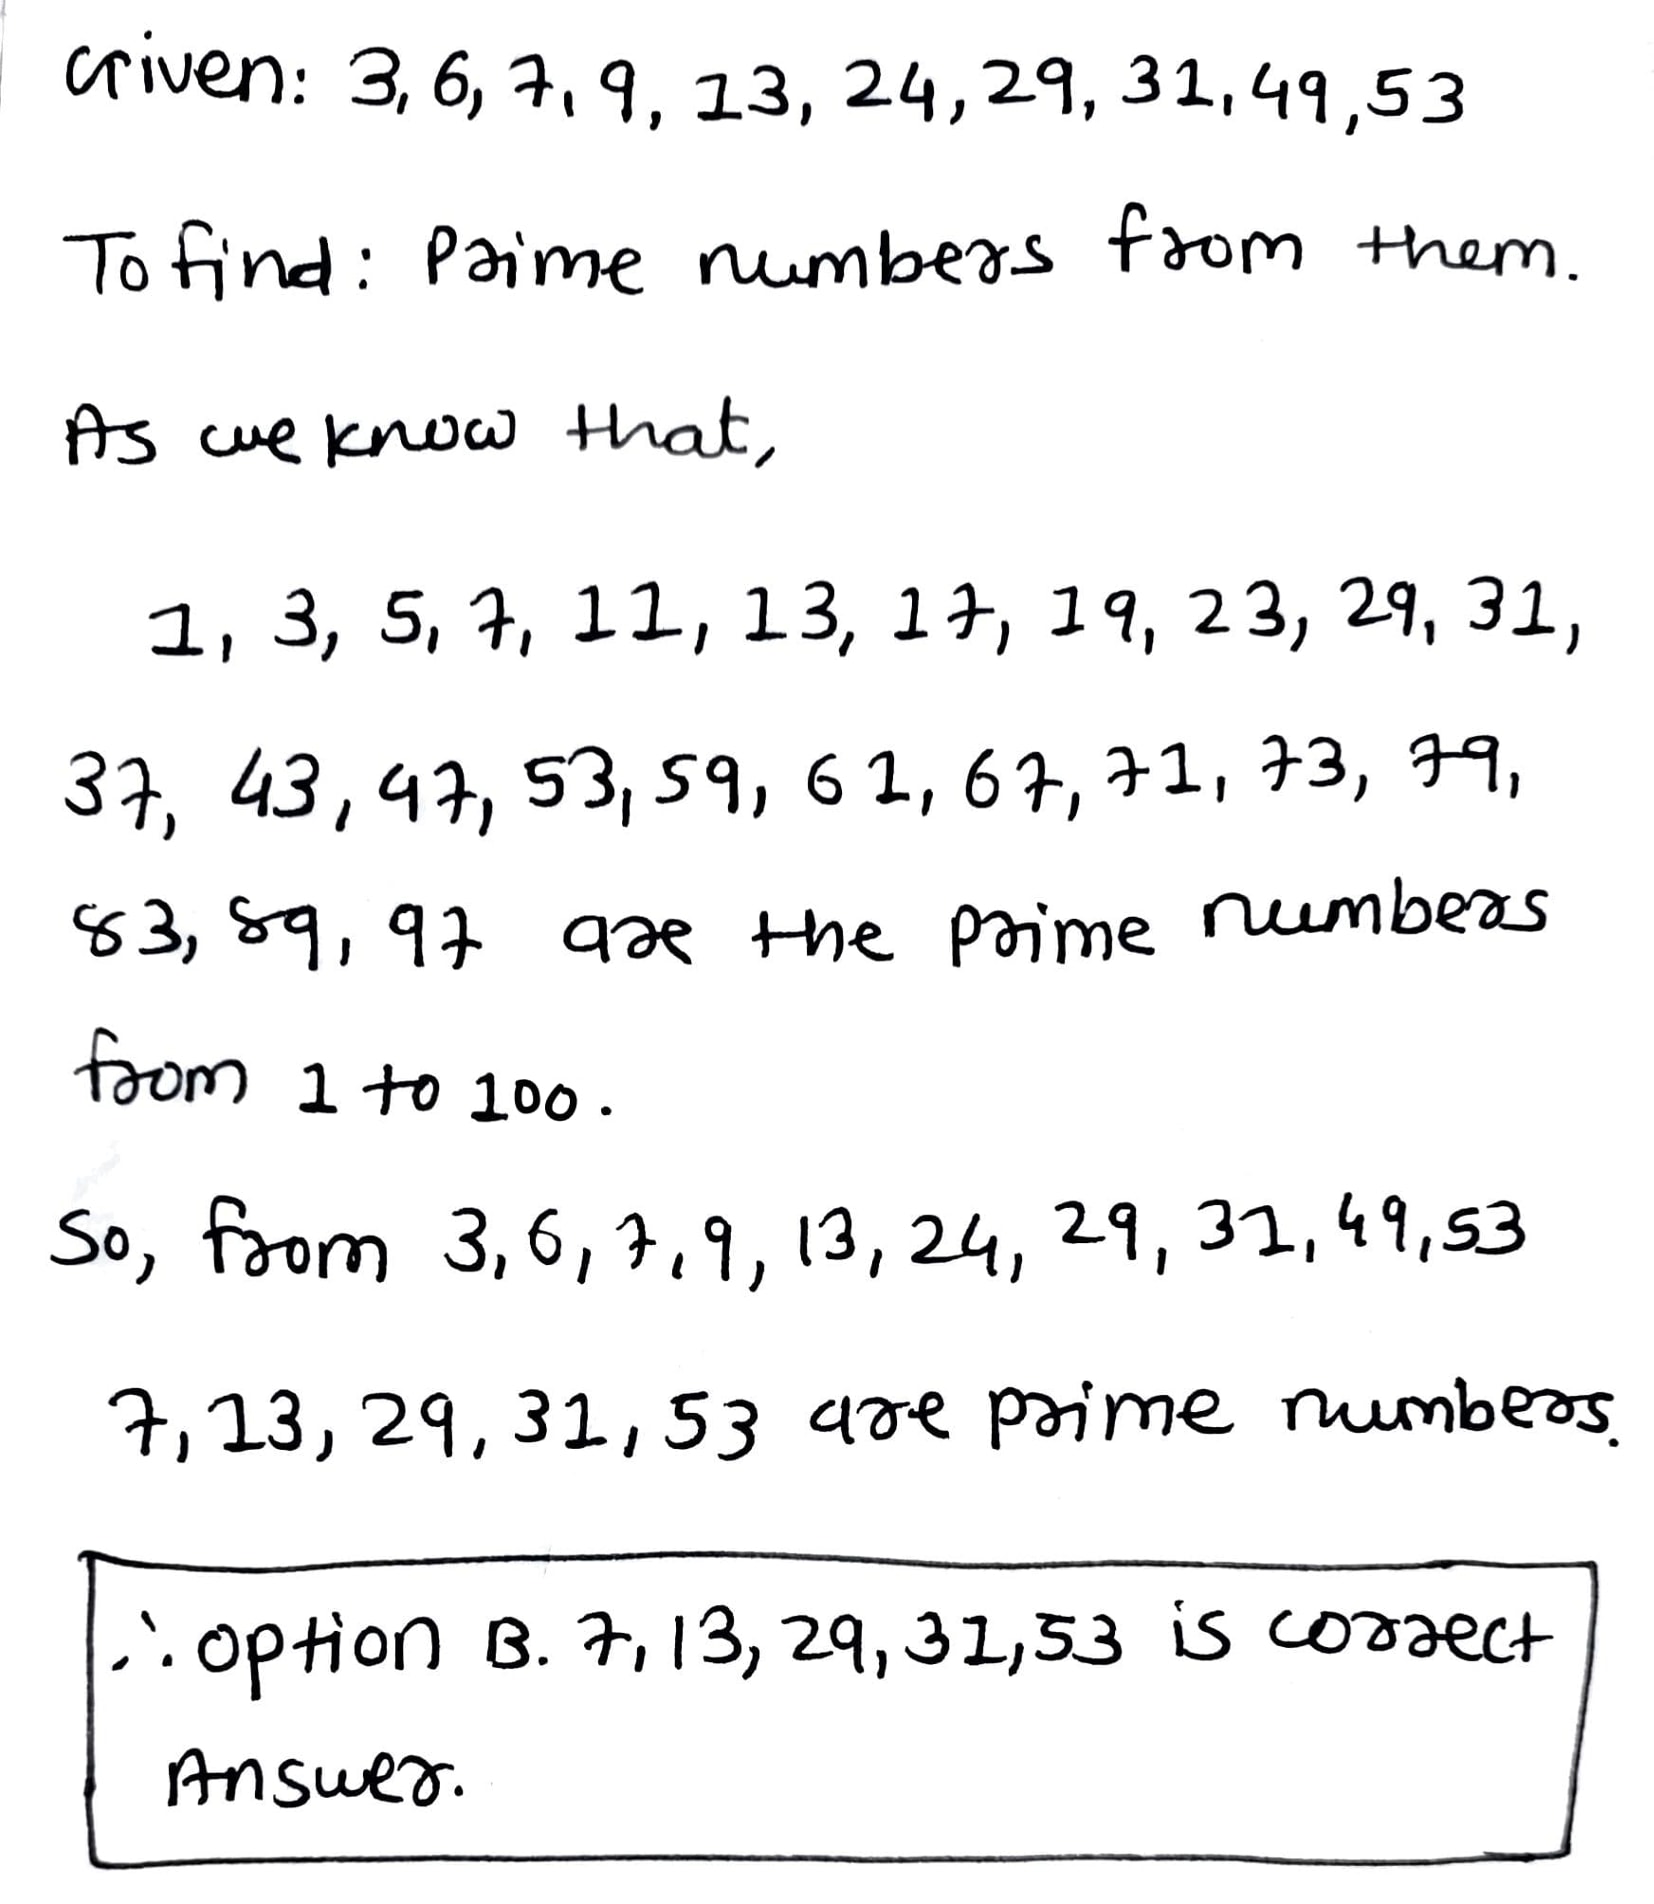 Given: 3, 6, 7, 9, 13, 24, 29, 31, 49, 53
To find: Prime numbers from them.
As we know that,
1, 3, 5, 7, 11, 13, 17, 19, 23, 29, 31,
37, 43, 47, 53, 59, 61, 67, 71, 73, 79,
83, 89, 97 are the prime numbers
from 1 to 100.
So, from 3, 6, 7, 9, 13, 24, 29, 31, 49, 53
7, 13, 29, 31, 53 are prime numbers.
∴ option B. 7, 13, 29, 31, 53 is correct
Answer.